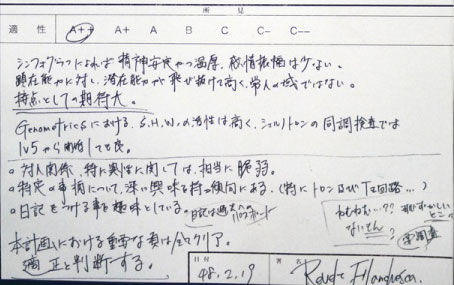 所見
適性 A++ A+ A B C C- C--
シンフォグラフによれば精神安定かつ温厚、感情振幅は少ない。
顕在能力に対し、潜在能力が飛び抜けて高く、常人の域ではない。
特点としての期待大。
Genometricsにおける、S.H.W.の活性は高く、シェルノトロンの同調検査では
lv5から開始しても良。
・対人関係、特に異性に関しては、相当に脆弱。
・特定の事柄について、深い興味を持つ傾向にある。(特にトロン及びTz回路…)
・日記をつける事を趣味としている。
日記は過去への
ねむねむ…??
ないせん?
要調査
本計画における重要な項は全てクリア。
適正と判断する。
日付
48.2.19
署名